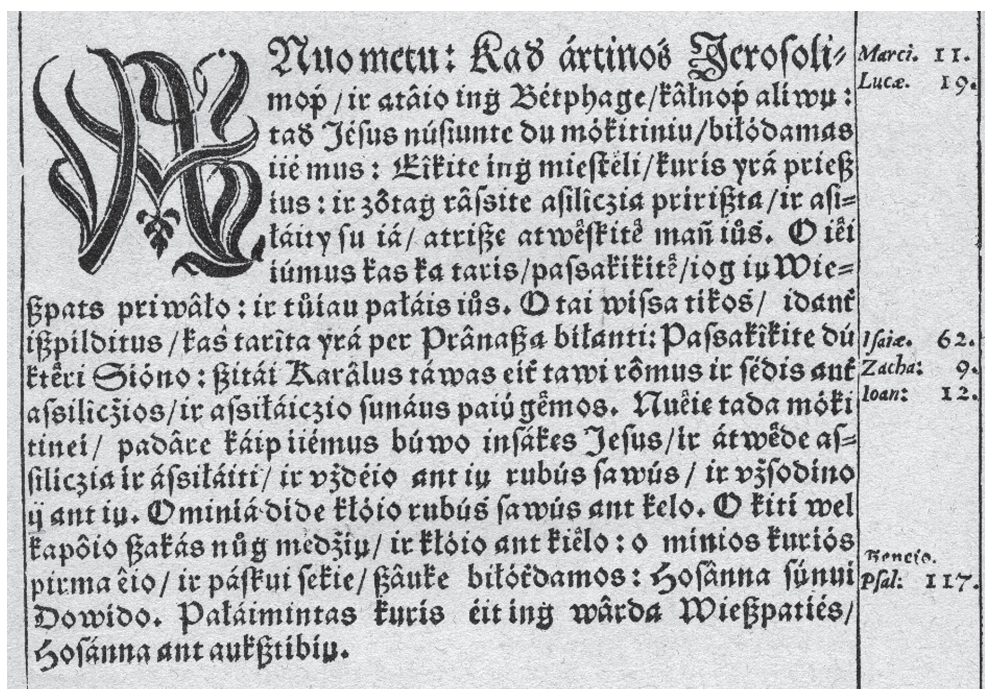 ANuo metu: Kad ártinoś Jeroſoli⸗
moṕ / ir atâio ing Bétphage/kâłnoṕ aliwų:
tad Jéſus núſiunte du mókitiniu/biłódamas
iiémus: Eîkite ing mieſtêli/kuris yrá prieß
ius: ir zôtag râſsite aſilìczia pririßta/ir aſi⸗
łáitỵ ſu iá/ atriße atwêſkitê mań iůs. O iêi
iúmus kas ka taris/paſsakikitê/iog iųWie⸗
ßpats priwâło: ir tůiau pałáis iůs. O tai wiſsa tikoś/ idant
ißpilditus /kaś tarîta yrá per Prânaßa biłanti: Paſsakîkite dú
ktêri Sióno: ßitái Karâlus táwas eit́ tawi rômus ir ſédis ant́
aſsilìcžios/ir aſsiłáiczio ſunáus paiúgêmos. Nuêie tada móki
tinei/ padâre káip iiémus búwo inſákes Jeſus/ir átwêde aſ⸗
ſiliczia ir áſsiłáiti/ ir vždéio ant ių rubús ſawús/ ir vžſodino
ij ant ių. O miniá dide kłóio rubúś ſawús ant kelo. O kiti wel
kapôio ßakás nůg medžių/ ir kłóio ant kiêlo: o minios kuriós
pirma êio/ ir páſkui ſekie/ßâuke biłódamos: Hoſânna súnui
Dowido. Pałáimintas kuris éit ing wârda Wießpatiés/
Hoſánna ant aukßtibių.
Marci. 11.
Lucæ. 19.
Iſaiæ. 62.
Zacha: 9.
Ioan: 12.
Pſal: 117.